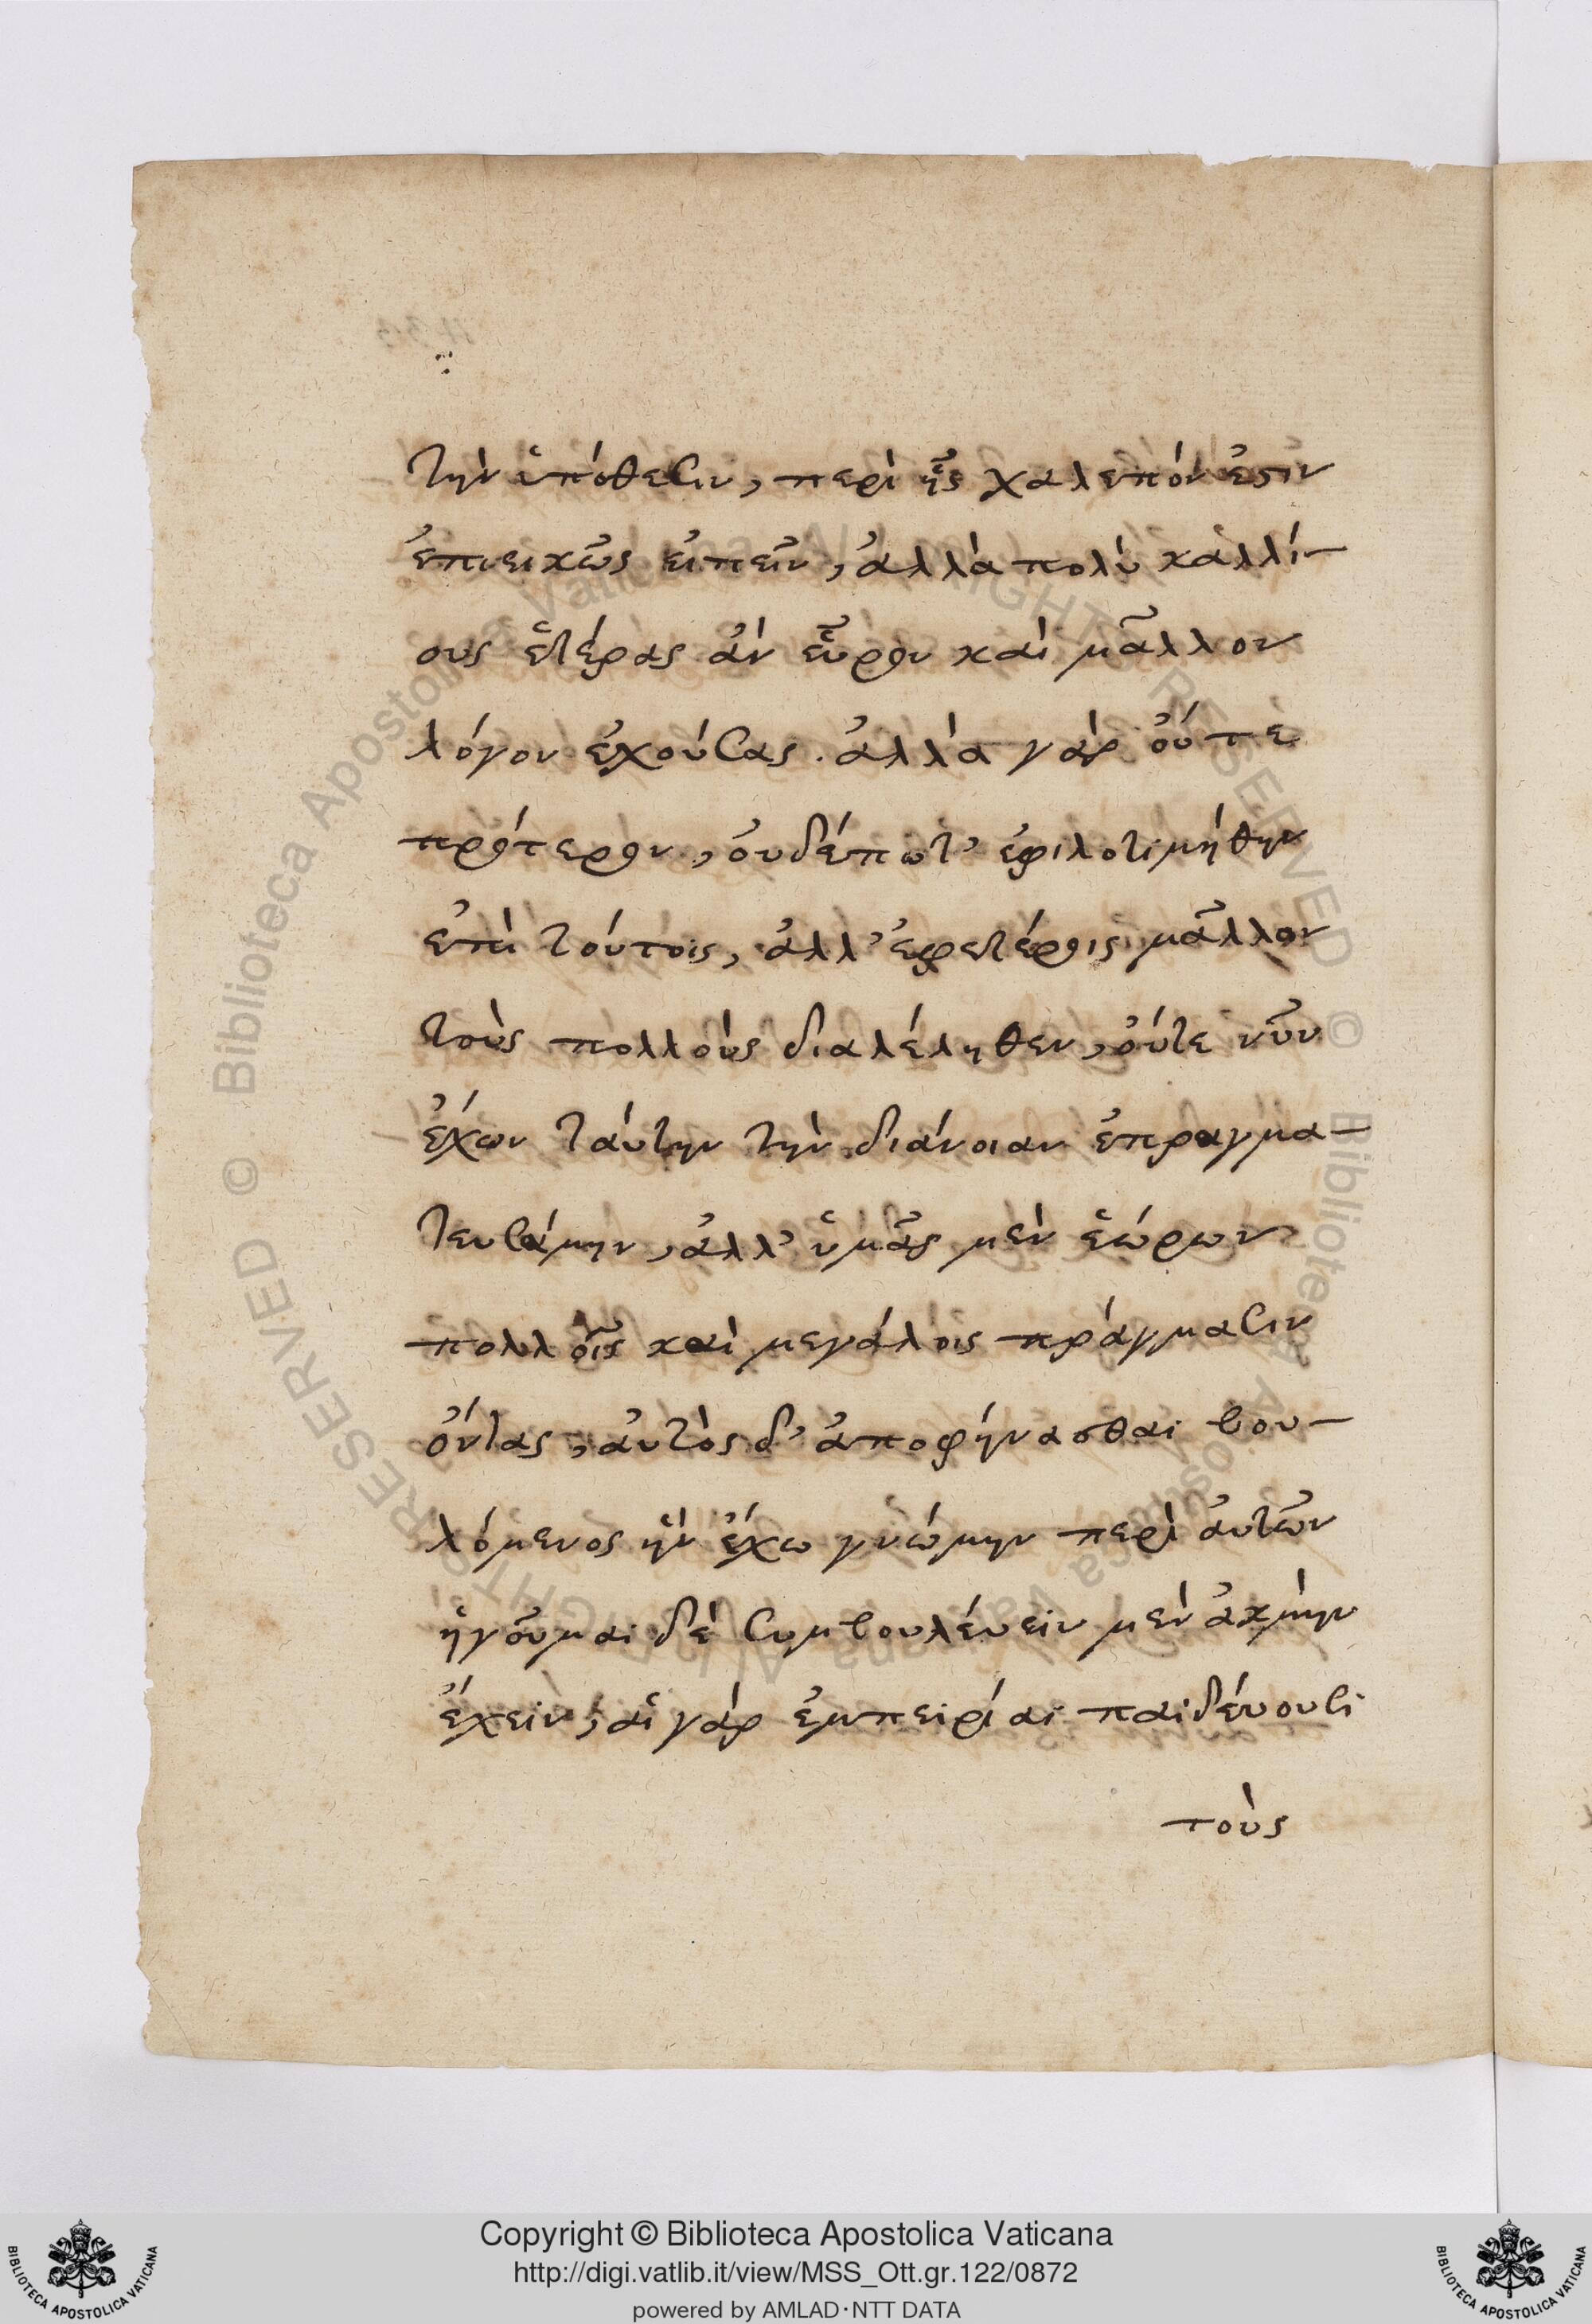 τὴν ὑπόθεσιν, περὶ ἧς χαλεπόν ἐστιν
ἐπιεικῶς εἰπεῖν, ἀλλὰ πολὺ καλλί-
ους ἑτέρας ἂν εὗρον καὶ μᾶλλον
λόγον ἐχούσας. ἀλλὰ γὰρ οὔτε
πρότερον, οὐδέπωτ' ἐφιλοτιμήθην
ἐπὶ τούτοις, ἀλλ' ἐφ ετέροις μᾶλλον
τοὺς πολλοὺς διαλέληθεν, οὔτε νῦν
ἔχων ταύτην τὴν διάνοιαν ἐπραγμα-
τευσάμην, ἀλλ' ὑμᾶς μὲν ἑώρων
πολλοῖς καὶ μεγάλοις πράγμασιν
ὄντας, αὐτὸς δ' ἀποφήνασθαι βου-
λόμενος ἣν ἔχω γνώμην περὶ αὐτῶν
ἡγοῦμαι δὲ συμβουλέυειν μὲν ἀκμὴν
ἔχειν, αἱ γὰρ ἐμπειρίαι παιδέυουσι
τοὺς
Copyright © Biblioteca Apostolica Vaticana
http://digi.vatlib.it/view/MSS_Ott.gr.122/0872
powered by AMLAD·NTT DATA
BIBLIOTECA APOSTOLICA VATICANA
BIBLIOTECA APOSTOLICA VATICANA